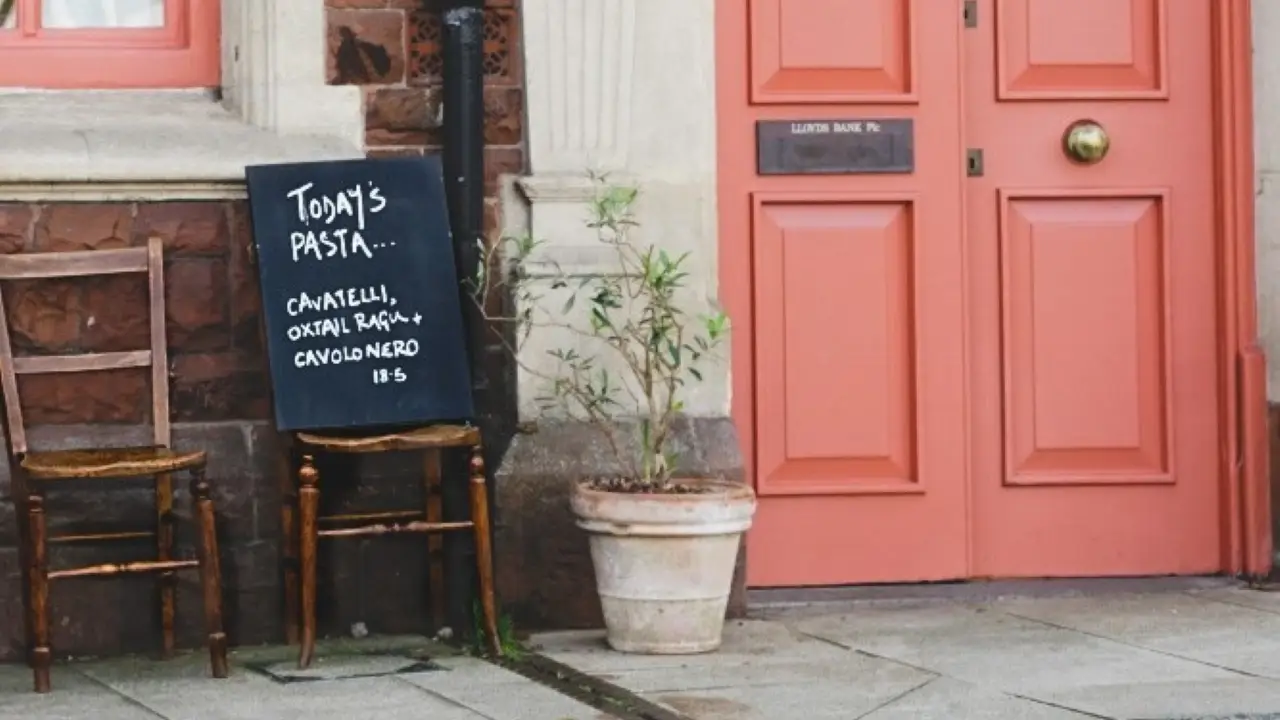 TODAY'S
PASTA...
CAVATELLI,
OXTAIL RAGU +
CAVOLO NERO
18.5
LLOYDS BANK Plc